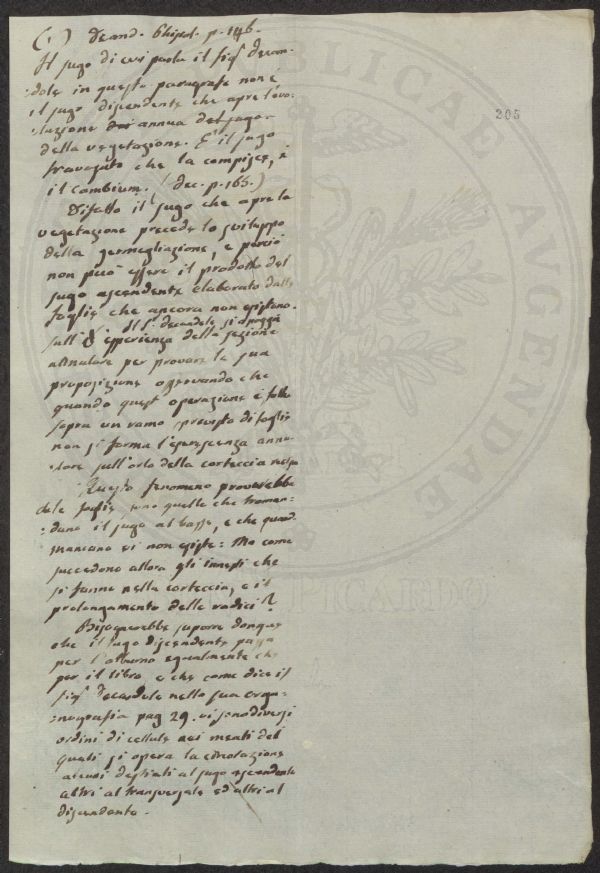 (1) Decand. Phisiol. p. 146.
Il sugo di cui parla il sigr decan-
:dole in questo paragrafo non è
il sugo discendente che apre l'evo-
:luzione annua del sugo
della vegetazione. E' il sugo
travasato che la compisce, è
il cambium. (dec. p. 165.)
205
Difatto il sugo che apre la
vegetazione precede lo sviluppo
della germogliazione, e perciò
non può essere il prodotto del
sugo ascendente elaborato dalle
foglie che ancora non esistono.
Il Sr decandole si appoggia
sull' esperienza della sezione
annulare per provare la sua
proposizione osservando che
quando quest operazione è fatta
sopra un ramo sprovisto di foglie
non si forma l'escrescenza annu-
:lare sull'orlo della corteccia
Questo fenomeno proverebbe
che le foglie sono quelle che traman-
:dano il sugo al basso, e che quando
mancano ei non esiste: Ma come
succedono allora gli innesti che
si fanno nella corteccia, e il
prolongamento delle radici?
Bisognerebbe suporre donque
che il sugo discendente passa
per l'alburno egualmente che
per il libro, e che come dice il
sigr Decandole nella sua orga-
:nografia pag 29. vi sono diversi
ordini di cellule nei meati del
quali si opera la circolazione
alcuni destinati al sugo ascendente
altri al transversale ed altri al
discendente.
PUBLICAE AVGENDAE
PICARDO